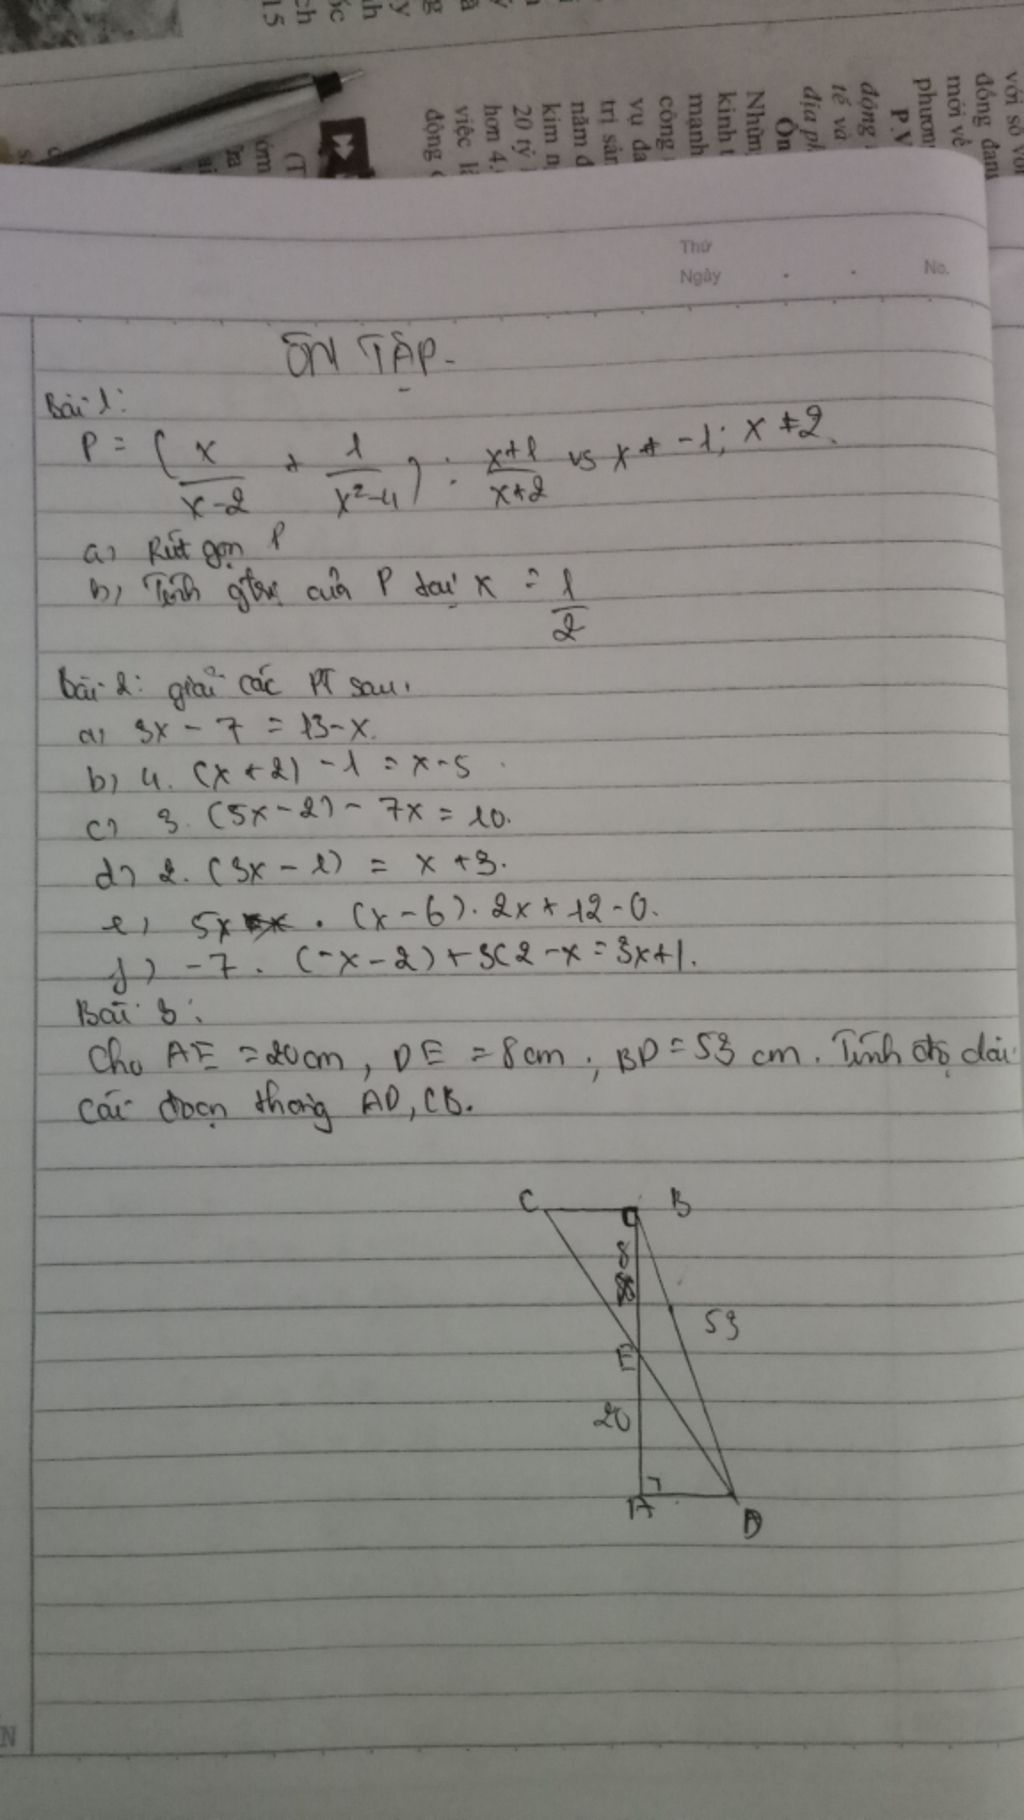 15
ch
ốc
nh
y
g
ã
(T
óm
ửa
động
việc l
hơn 4.
20 tỷ
kim n
năm đ
trị sản
vụ da
công
mạnh
kinh t
Nhữn
Ôn
địa ph
tế và
động
P.V
phươn
mới vẽ
đồng đan
với số
Thứ
Ngày . . No.
ÔN TẬP-
Bài 1:
P = ( x/x-2 + 1/x²-4 ) : x+1/x+2 vs x ≠ -1; x ≠ 2.
a) Rút gọn P
b) Tính gtrị của P tại x = 1/2
Bài 2: giải các PT sau.
a) 3x - 7 = 13-x.
b) 4. (x + 2) - 1 = x-5
c) 3. (5x - 2) - 7x = 10.
d) 2. (3x - 1) = x + 3.
e) 5x . (x-6). 2x + 12-0.
f) -7 . (-x-2) + 3(2-x = 3x+1.
Bài 3:
Cho AE = 20cm, DE = 8cm ; BD = 53 cm. Tính độ dài
các đoạn thẳng AD, CB.
C B
8
53
E
20
A D
N